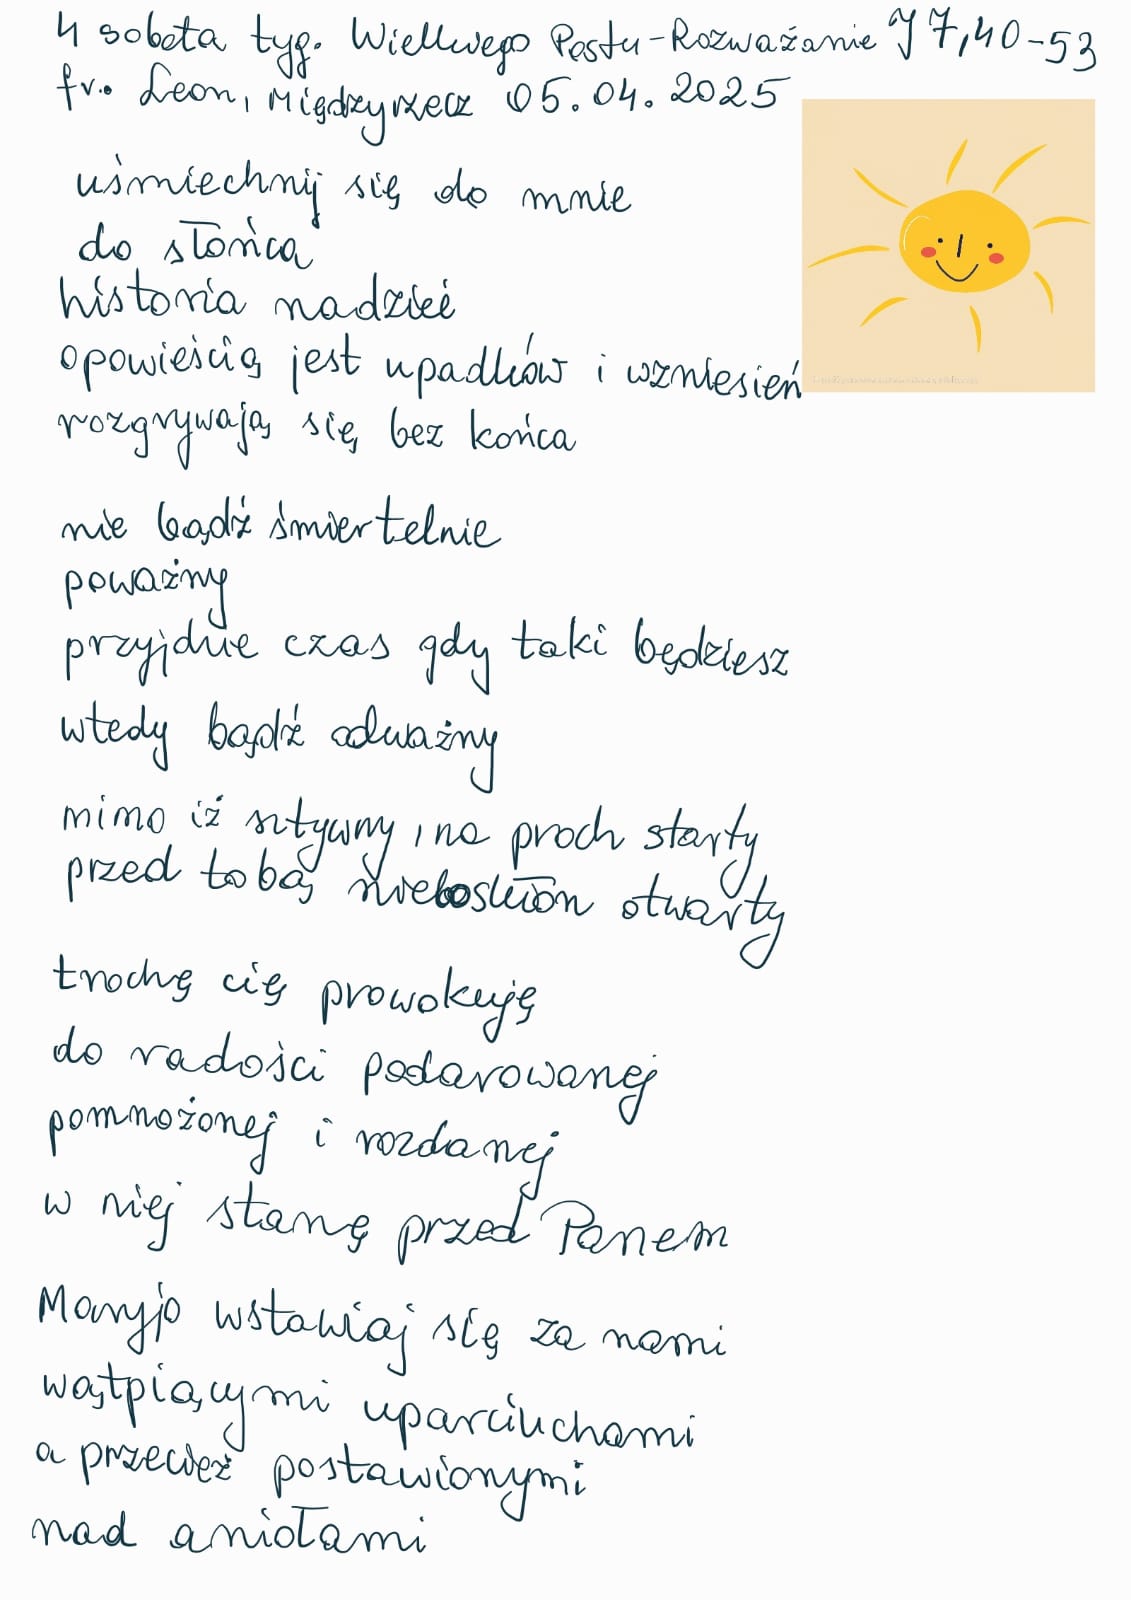 4 sobota tyg. Wielkiego Postu - Rozważanie J 7,40-53
fr. Leon, Międzyrzecz 05.04.2025
uśmiechnij się do mnie
do słońca
historia nadziei
opowieścią jest upadków i wzniesień
rozgrywają się bez końca
nie bądź śmiertelnie
poważny
przyjdzie czas gdy taki będziesz
wtedy bądź odważny
mimo iż sztywny, na proch starty
przed tobą nieboskłon otwarty
trochę cię prowokuję
do radości podarowanej
pomnożonej i rozdanej
w niej stanę przed Panem
Maryjo wstawiaj się za nami
wątpiącymi uparciuchami
a przecież postawionymi
nad aniołami